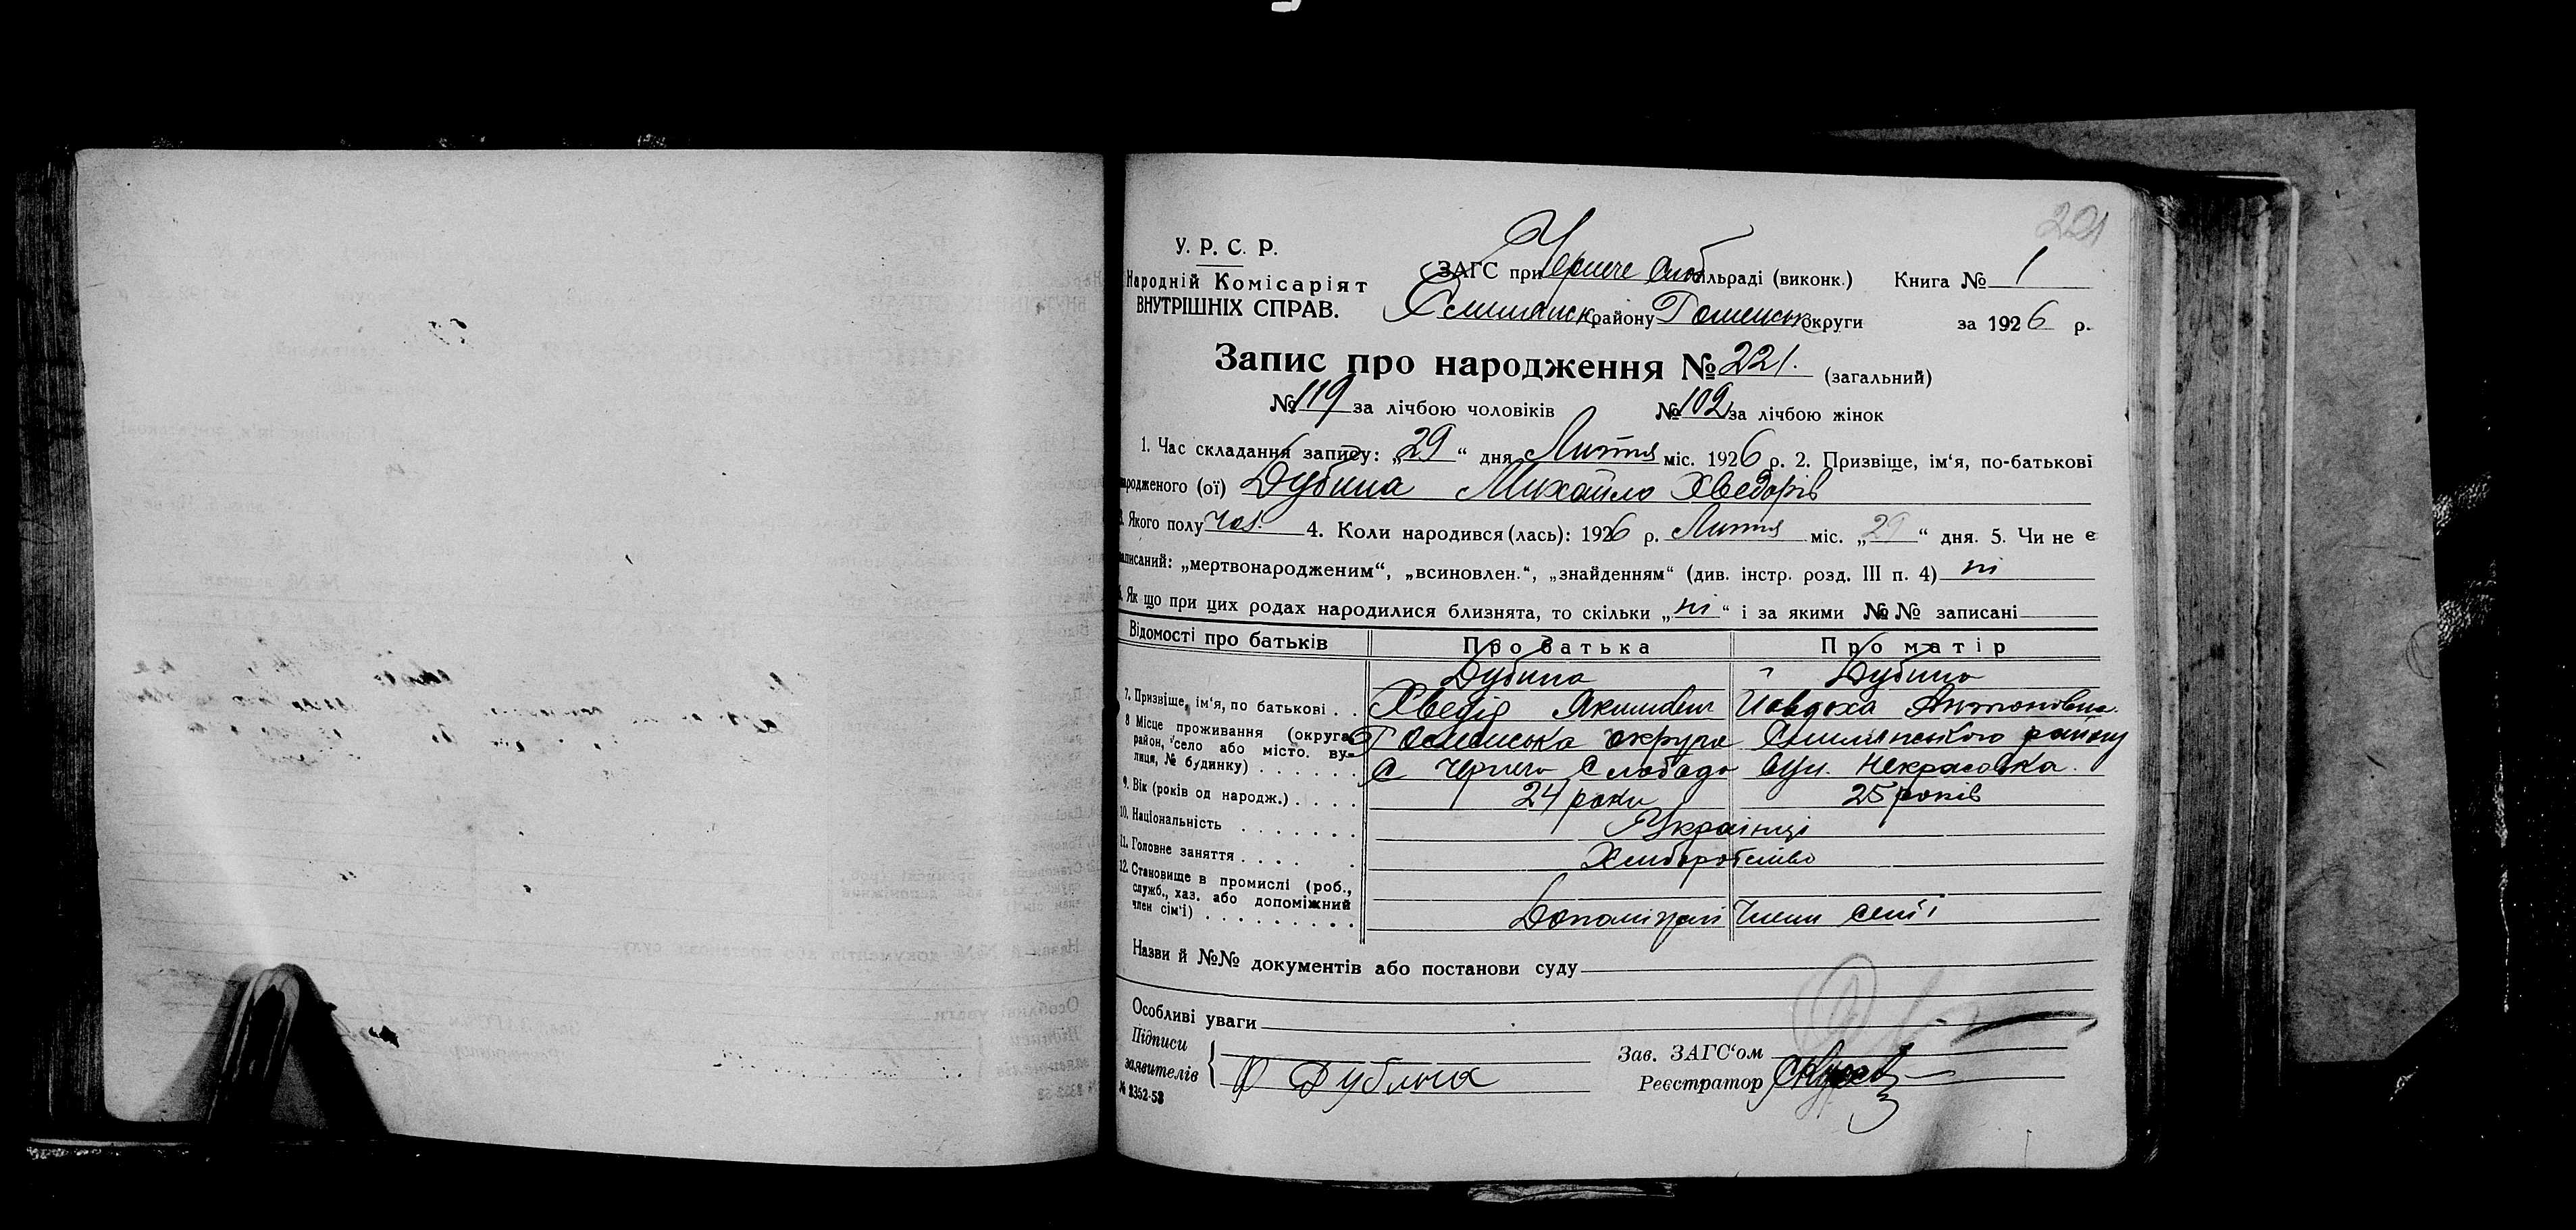 221
У. Р. С. Р.
Народній Комісаріят
ВНУТРІШНІХ СПРАВ.
ЗАГС при Чернече Слоб ільраді (виконк.) Книга № 1
району Роменськ округи за 1926 р.
Запис про народження № 221. (загальний)
№ 119 за лічбою чоловіків № 102 за лічбою жінок
1. Час складання запису: „29“ дня Лютня міс. 1926 р. 2. Призвіще, ім‘я, по-батькові
народженого (ої) Дубина Михайло Хведорів
3. Якого полу чол. 4. Коли народився (лась): 1926 р. Лютня міс. „29“ дня. 5. Чи не є
записаний: „мертвонародженим“, „всиновлен.“, „знайденням“ (див. інстр. розд. III п. 4) ні
6. Як що при цих родах народилися близнята, то скільки „ні“ і за якими №№ записані
Відомості про батьків Про батька Про матір
Дубина Дубина
7. Призвіще, ім‘я, по батькові . . Хведір Якимович Иовдоха Антоновна.
8 Місце проживання (округа, Роменська округа Смілянського району
район, село або місто. ву-
лиця, № будинку) . . . . . . С Чернеча Слобода вул. Некрасовка.
9. Вік (років од народж.) . . . . 24 роки 25 років
10. Національність . . . . . . . Українці
11. Головне заняття . . . . . Хліборобство
12. Становище в промислі (роб.,
служб., хаз. або допоміжний
член сім‘ї) . . . . . . . . . Допомізжні Члени семї
Назви й №№ документів або постанови суду
Особливі уваги
Підписи
заявителів
Зав. ЗАГС‘ом
Дубина Реєстратор
№ 2352-53